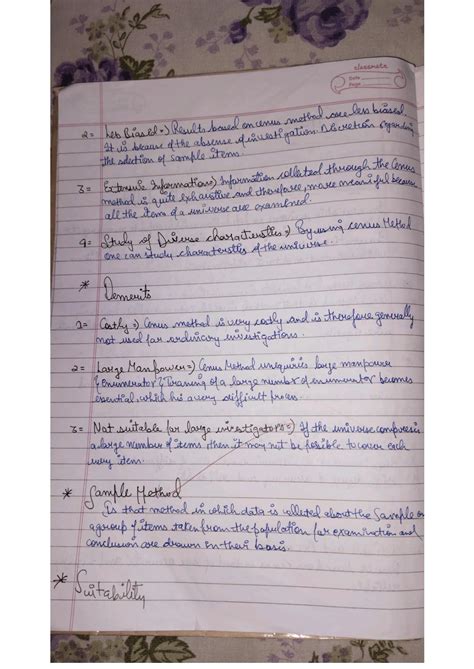 classmate
Date
Page
2= Less Biased => Results based on cenus method are less biased.
It is because of the absense of investigation. Discretion regarding
the selection of sample items.
3= Extensive Informations => Information colleted through the Cenus
method is quite exhaustive and therefore, more meaniful because
all the items of a universe are examined.
4= Study of Diverse charactieristics => By using cenus Method
one can study characterstics of the universe.
* Demerits
1= Costly => Cenus method is very costly and is therefore generally
not used for ordinary investigations.
2= Large Manpower => Cenus Method requiries large manpower
Enumerator Training of a large number of enumerator becomes
essential which is a very difficult process.
3= Not suitable for large investigators => If the universe compress
a large number of items then it may not be possible to cover each
every item.
* Sample Method
Is that method in which data is colleted about the Sample or
a group of items taken from the population for examination and
conclusion are drawn on their basis.
* Suitability